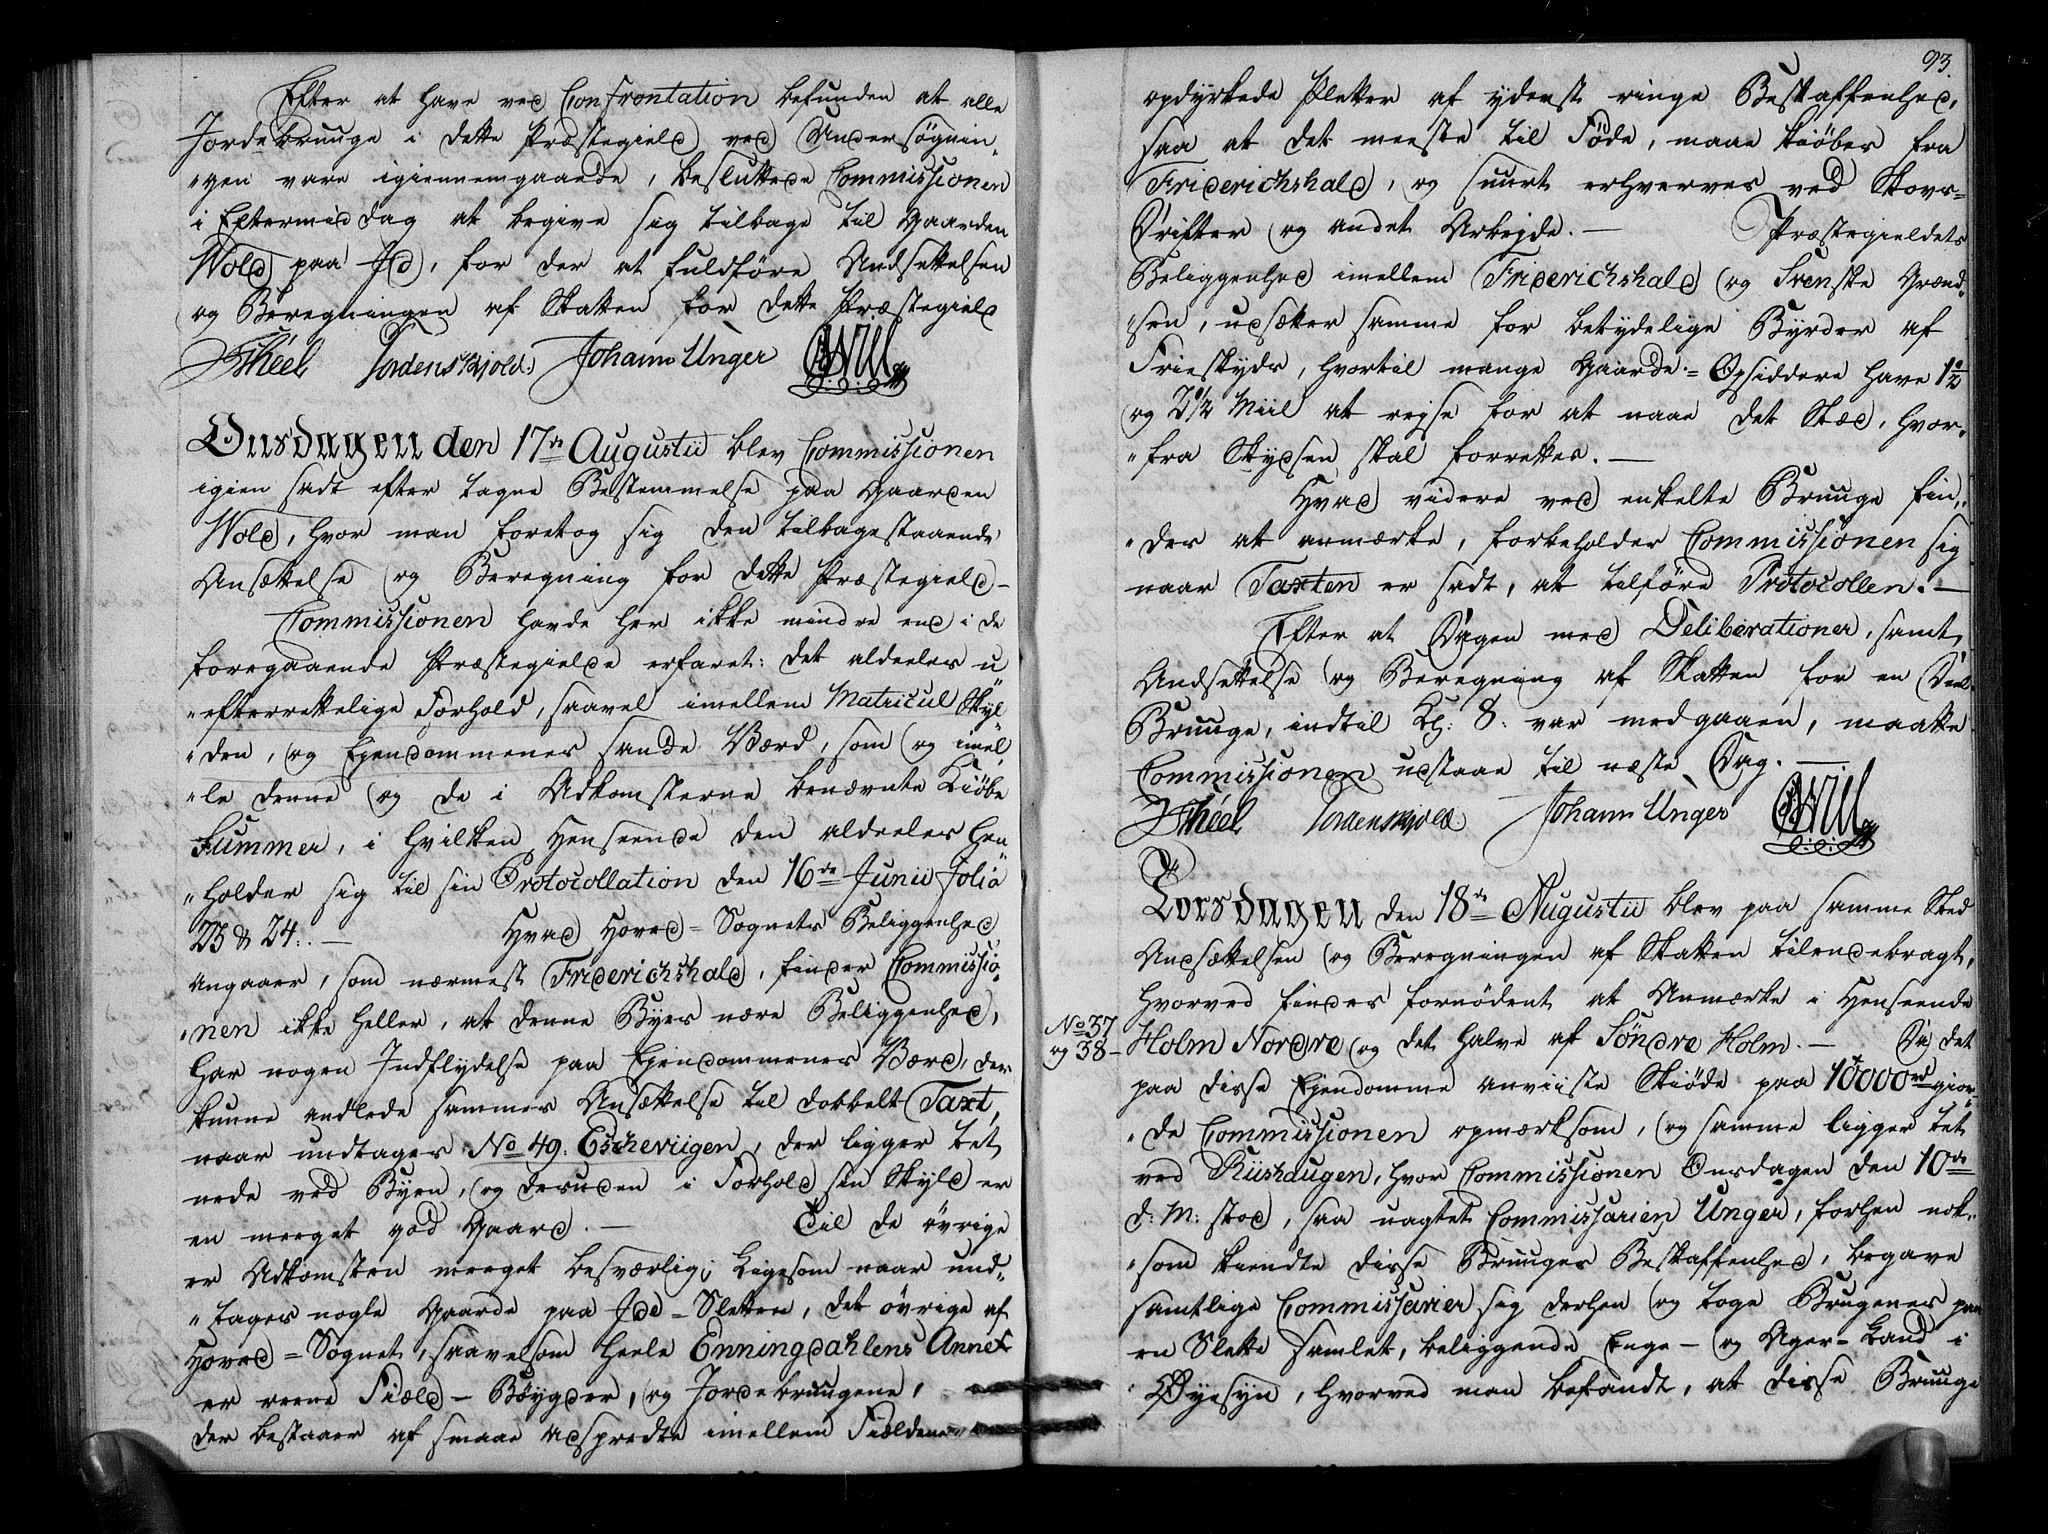 Efter at have ved Confrontation befunden at alle
Jordebruuge i dette Præstegield ved Undersögnin„
„gen vare igiennemgaaede, besluttede Commissionen
i Eftermiddag at begive sig tilbage til Gaarden
Wold paa Id, for der at fuldföre Andsettelsen
og Beregningen af Skatten for dette Præstegield
Théel Tordenskjold. Johann Unger Will
Onsdagen den 17de Augustii blev Commissionen
igien sadt efter tagne Bestemmelse paa Gaarden
Wold, hvor man foretog sig den tilbagestaaende
Ansættelse og Beregning for dette Præstegield –
Commissionen havde her ikke mindre end i de
foregaaende Præstegielde erfaret: det aldeeles u
„efterrettelige Forhold, saavel imellem Matricul Skyl
„den, og Ejendommenes sande Værd, som og imel
„le denne og de i Adkomsterne benævnte Kiöbe
Summer, i hvilken Henseende den aldeeles hen
„holder sig til sin Protocollation den 16de Junii Folio
23 & 24. — Hvad Hoved=Sognets Beliggenhed
angaaer, som nærmest Friderichshald, finder Commissio„
„nen ikke heller, at denne Byes nære Beliggenhed,
har nogen Indflydelse paa Ejendommenes Værd, der
kunne andlede sammes Ansættelse til dobbelt Taxt,
naar undtages No 49. Escheviigen, der ligger tet
nede ved Byen, og desuden i Forhold sin Skyld er
en meeget god Gaard. — Til de övrige
er Adkomsten meeget besværlig; Ligesom naar und„
„tages nogle Gaarde paa Idd=Sletten, det övrige af
Hoved=Sognet, saavelsom heele Enningdahlens Annex
er reene Field–Böygder, og Jordebruugene,
der bestaaer af smaae adspredte imellem Fieldene
93.
opdyrkede Pletter af yderst ringe Beskaffenhed,
saa at det meeste til Föde, maae kiöbes fra
Friderichshald, og suurt erhverves ved Skovs=
Drifter og andet Arbejde. — Præstegieldets
Beliggenhed imellem Friderichshald og Svenske Grænd„
„sen, udsætter samme for betydelige Byrder af
Frieskyds, hvortil mange Gaarde=Opsiddere have 1½
og 2½ Miil at rejse for at naae det Sted, hvor„
„fra Skydsen skal forrettes. —
Hvad videre ved enkelte Bruuge fin„
„des at anmærke, forbeholder Commissionen sig
naar Taxten er sadt, at tilföre Protocollen. —
Efter at Dagen med Deliberationer, samt
Andsettelse og Beregning af Skatten for en Deel
Bruuge, indtil Kl: 8. var medgaaen, maatte
Commissionen udstaae til næste Dag. —
Théel Tordenskjold. Johann Unger Will
Torsdagen den 18de Augustii blev paa samme Sted
Andsættelsen og Beregningen af Skatten tilendebragt,
hvorved findes fornödent at Anmærke i Henseende
No 37
og 38 – Holm Nordre og det halve af Söndre Holm. — Da det
paa disse Ejendomme anviiste Skiöde paa 10000rd gior„
„de Commissionen opmærksom, og samme ligger tet
ved Riishaugen, hvor Commissionen Onsdagen den 10de
d: M: stod, saa uagtet Commissarien Unger, forhen nok„
„som kiendte disse Bruuges Beskaffenhed, begave
samtlige Commissarier sig derhen og toge Brugenes paa
en Slette samlet, beliggende Enge– og Ager–Land i
Øyesyn, hvorved man befandt, at disse Bruuge